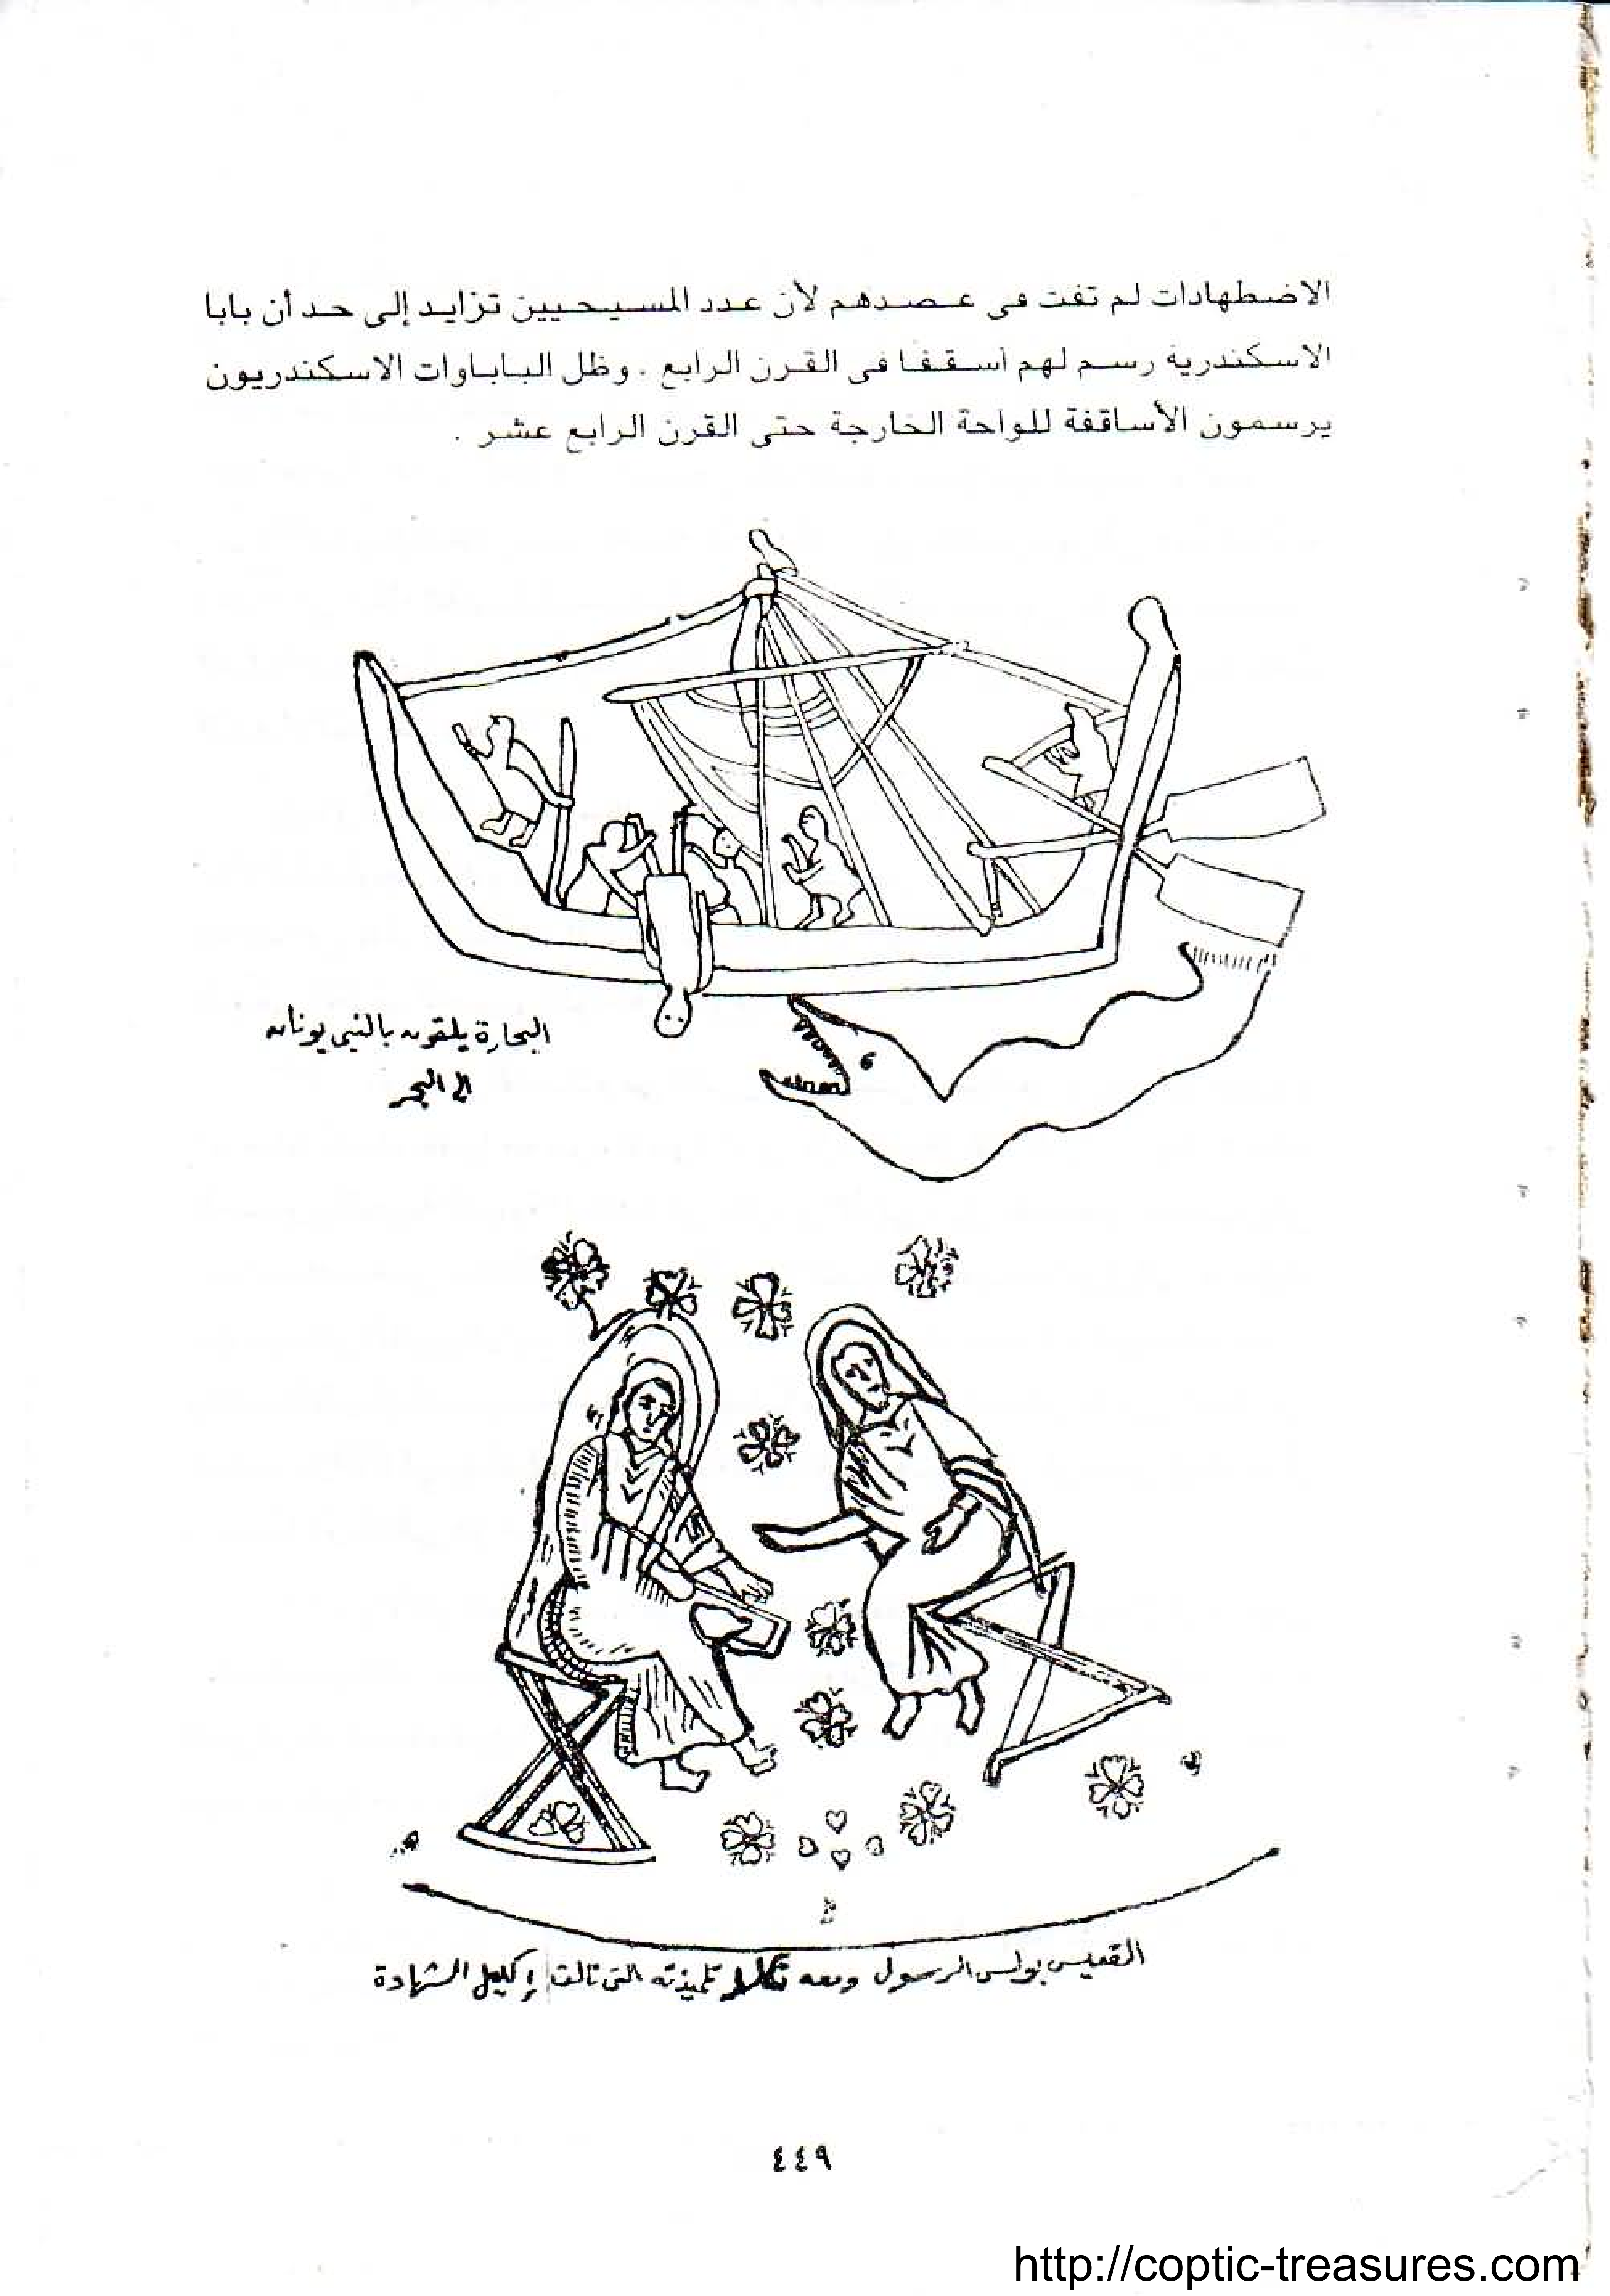 الاضطهادات لم تفت فى عضدهم لأن عدد المسيحيين تزايد إلى حد أن بابا
الاسكندرية رسم لهم أسقفا فى القرن الرابع . وظل الباباوات الاسكندريون
يرسمون الأساقفة للواحة الخارجة حتى القرن الرابع عشر .
البحارة يلقون بالنبى يونان
إلى البحر
القديس بولس الرسول ومعه تكلا تلميذته التى نالت إكليل الشهادة
٤٤٩
http://coptic-treasures.com